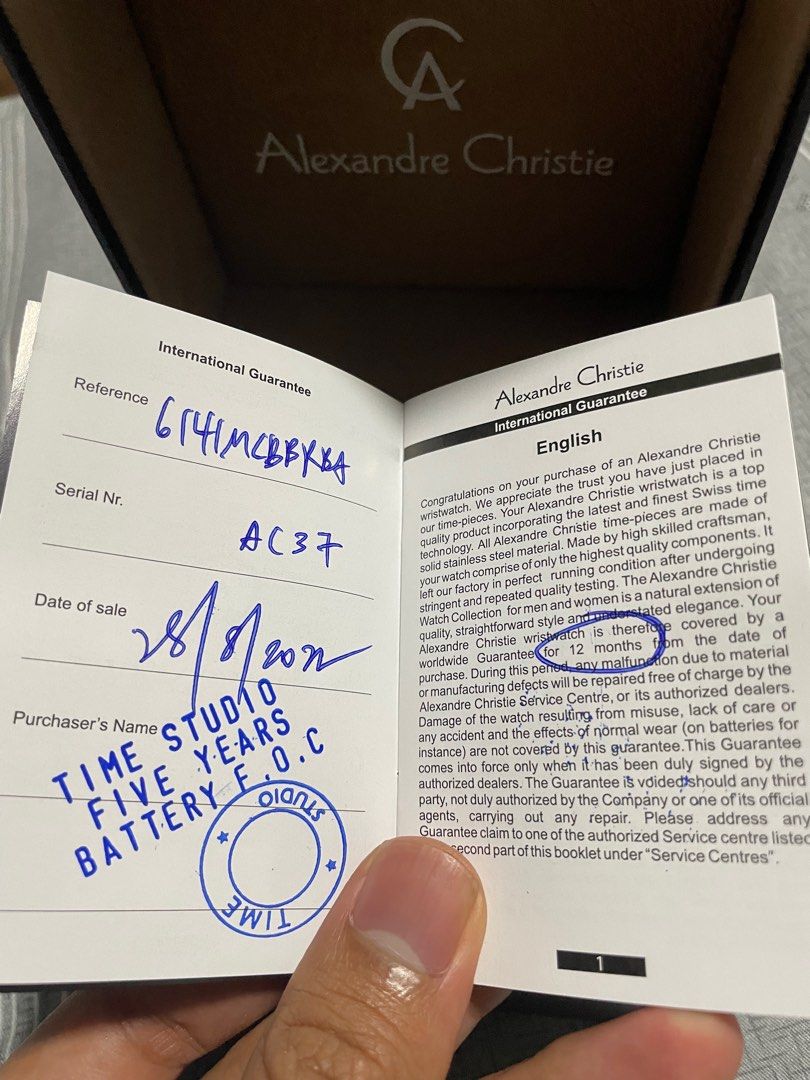 CA
Alexandre Christie
International Guarantee
Reference 6141MCBBRBA
Serial Nr.
AC37
Date of sale 28/8/2022
Purchaser's Name
TIME STUDIO
FIVE YEARS
BATTERY F.O.C
STUDIO
TIME
Alexandre Christie
International Guarantee
English
Congratulations on your purchase of an Alexandre Christie
wristwatch. We appreciate the trust you have just placed in
our time-pieces. Your Alexandre Christie wristwatch is a top
quality product incorporating the latest and finest Swiss time
technology. All Alexandre Christie time-pieces are made of
solid stainless steel material. Made by high skilled craftsman,
your watch comprise of only the highest quality components. It
left our factory in perfect running condition after undergoing
stringent and repeated quality testing. The Alexandre Christie
Watch Collection for men and women is a natural extension of
quality, straightforward style and understated elegance. Your
Alexandre Christie wristwatch is therefore covered by a
worldwide Guarantee for 12 months from the date of
purchase. During this period, any malfunction due to material
or manufacturing defects will be repaired free of charge by the
Alexandre Christie Service Centre, or its authorized dealers.
Damage of the watch resulting from misuse, lack of care or
any accident and the effects of normal wear (on batteries for
instance) are not covered by this guarantee. This Guarantee
comes into force only when it has been duly signed by the
authorized dealers. The Guarantee is voided should any third
party, not duly authorized by the Company or one of its official
agents, carrying out any repair. Please address any
Guarantee claim to one of the authorized Service centre listed
second part of this booklet under "Service Centres".
1